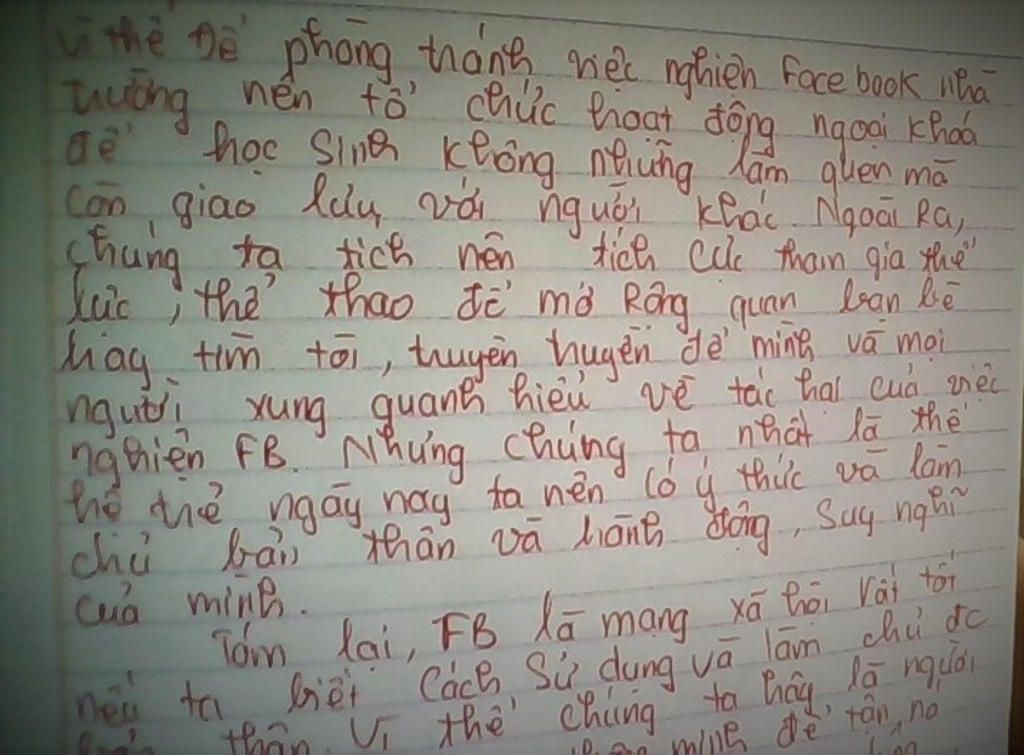 vì thế Để phòng tránh việc nghiện Face book nhà
trường nên tổ chức hoạt động ngoại khoá
để học sinh không những làm quen mà
còn giao lưu với người khác. Ngoài Ra,
chúng ta tích nên tích cực tham gia thể
lực, thể thao để mở Rộng quan bạn bè
hay tìm tòi, truyên truyền để mình và mọi
người xung quanh hiểu về tác hại của việc
nghiện FB. Nhưng chúng ta nhất là thế
hệ trẻ ngày nay ta nên có ý thức và làm
chủ bản thân và hành động, suy nghĩ
của mình.
Tóm lại, FB là mạng xã hội rất tốt
nếu ta biết cách sử dụng và làm chủ đc
thân. Vì thế chúng ta hãy là người
mình để tận nó